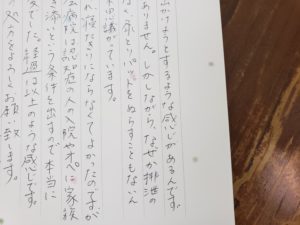 出かけようとするような感じがあるんです
ありません。しかしながら、なぜか排泄の
尿とりパットをぬらすこともないん
不思議がってます。
れ寝たきりにならなくてよかったのですが
病院は認知症の人の入院やオペに家族
き添いという条件を出すので本当に
でした。経過は以上のような感じです。
の処方をよろしくお願い致します。